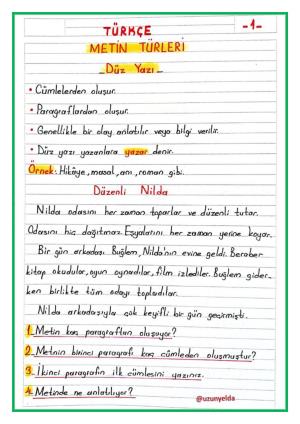 TÜRKÇE
-1-
METİN TÜRLERİ
Düz Yazı
• Cümlelerden oluşur.
• Paragraflardan oluşur.
• Genellikle bir olay anlatılır veya bilgi verilir.
• Düz yazı yazanlara yazar denir.
Örnek: Hikâye, masal, anı, roman gibi.
Düzenli Nilda
Nilda odasını her zaman toparlar ve düzenli tutar.
Odasını hiç dağıtmaz. Eşyalarını her zaman yerine koyar.
Bir gün arkadaşı Buğlem, Nilda'nın evine geldi. Beraber
kitap okudular, oyun oynadılar, film izlediler. Buğlem gider-
ken birlikte tüm odayı topladılar.
Nilda arkadaşıyla çok keyifli bir gün geçirmişti.
1. Metin kaç paragraftan oluşuyor?
2. Metnin birinci paragrafı kaç cümleden oluşmuştur?
3. İkinci paragrafın ilk cümlesini yazınız.
4. Metinde ne anlatılıyor?
@uzunyelda